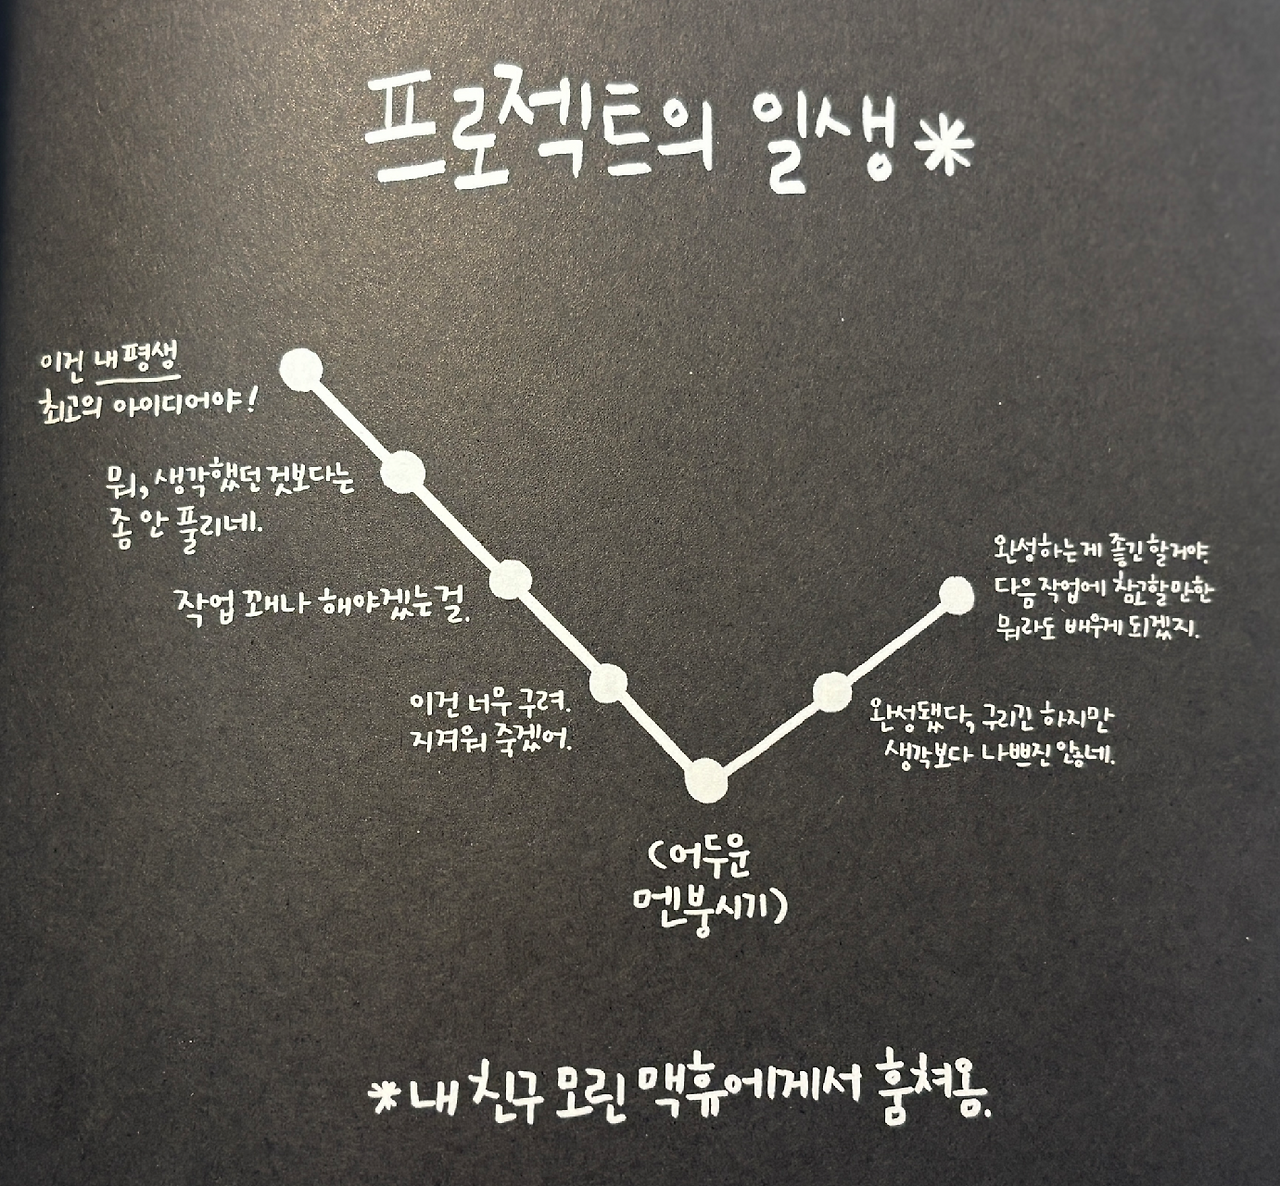 프로젝트의 일생*
이건 내 평생
최고의 아이디어야!
뭐, 생각했던 것보다는
좀 안 풀리네.
작업 꽤나 해야겠는걸.
이건 너무 구려.
지겨워 죽겠어.
(어두운
멘붕시기)
완성됐다, 구리긴 하지만
생각보다 나쁘진 않네.
완성하는게 좋긴 할거야.
다음 작업에 참고할 만한
뭐라도 배우게 되겠지.
*내 친구 모린 맥휴에게서 훔쳐옴.